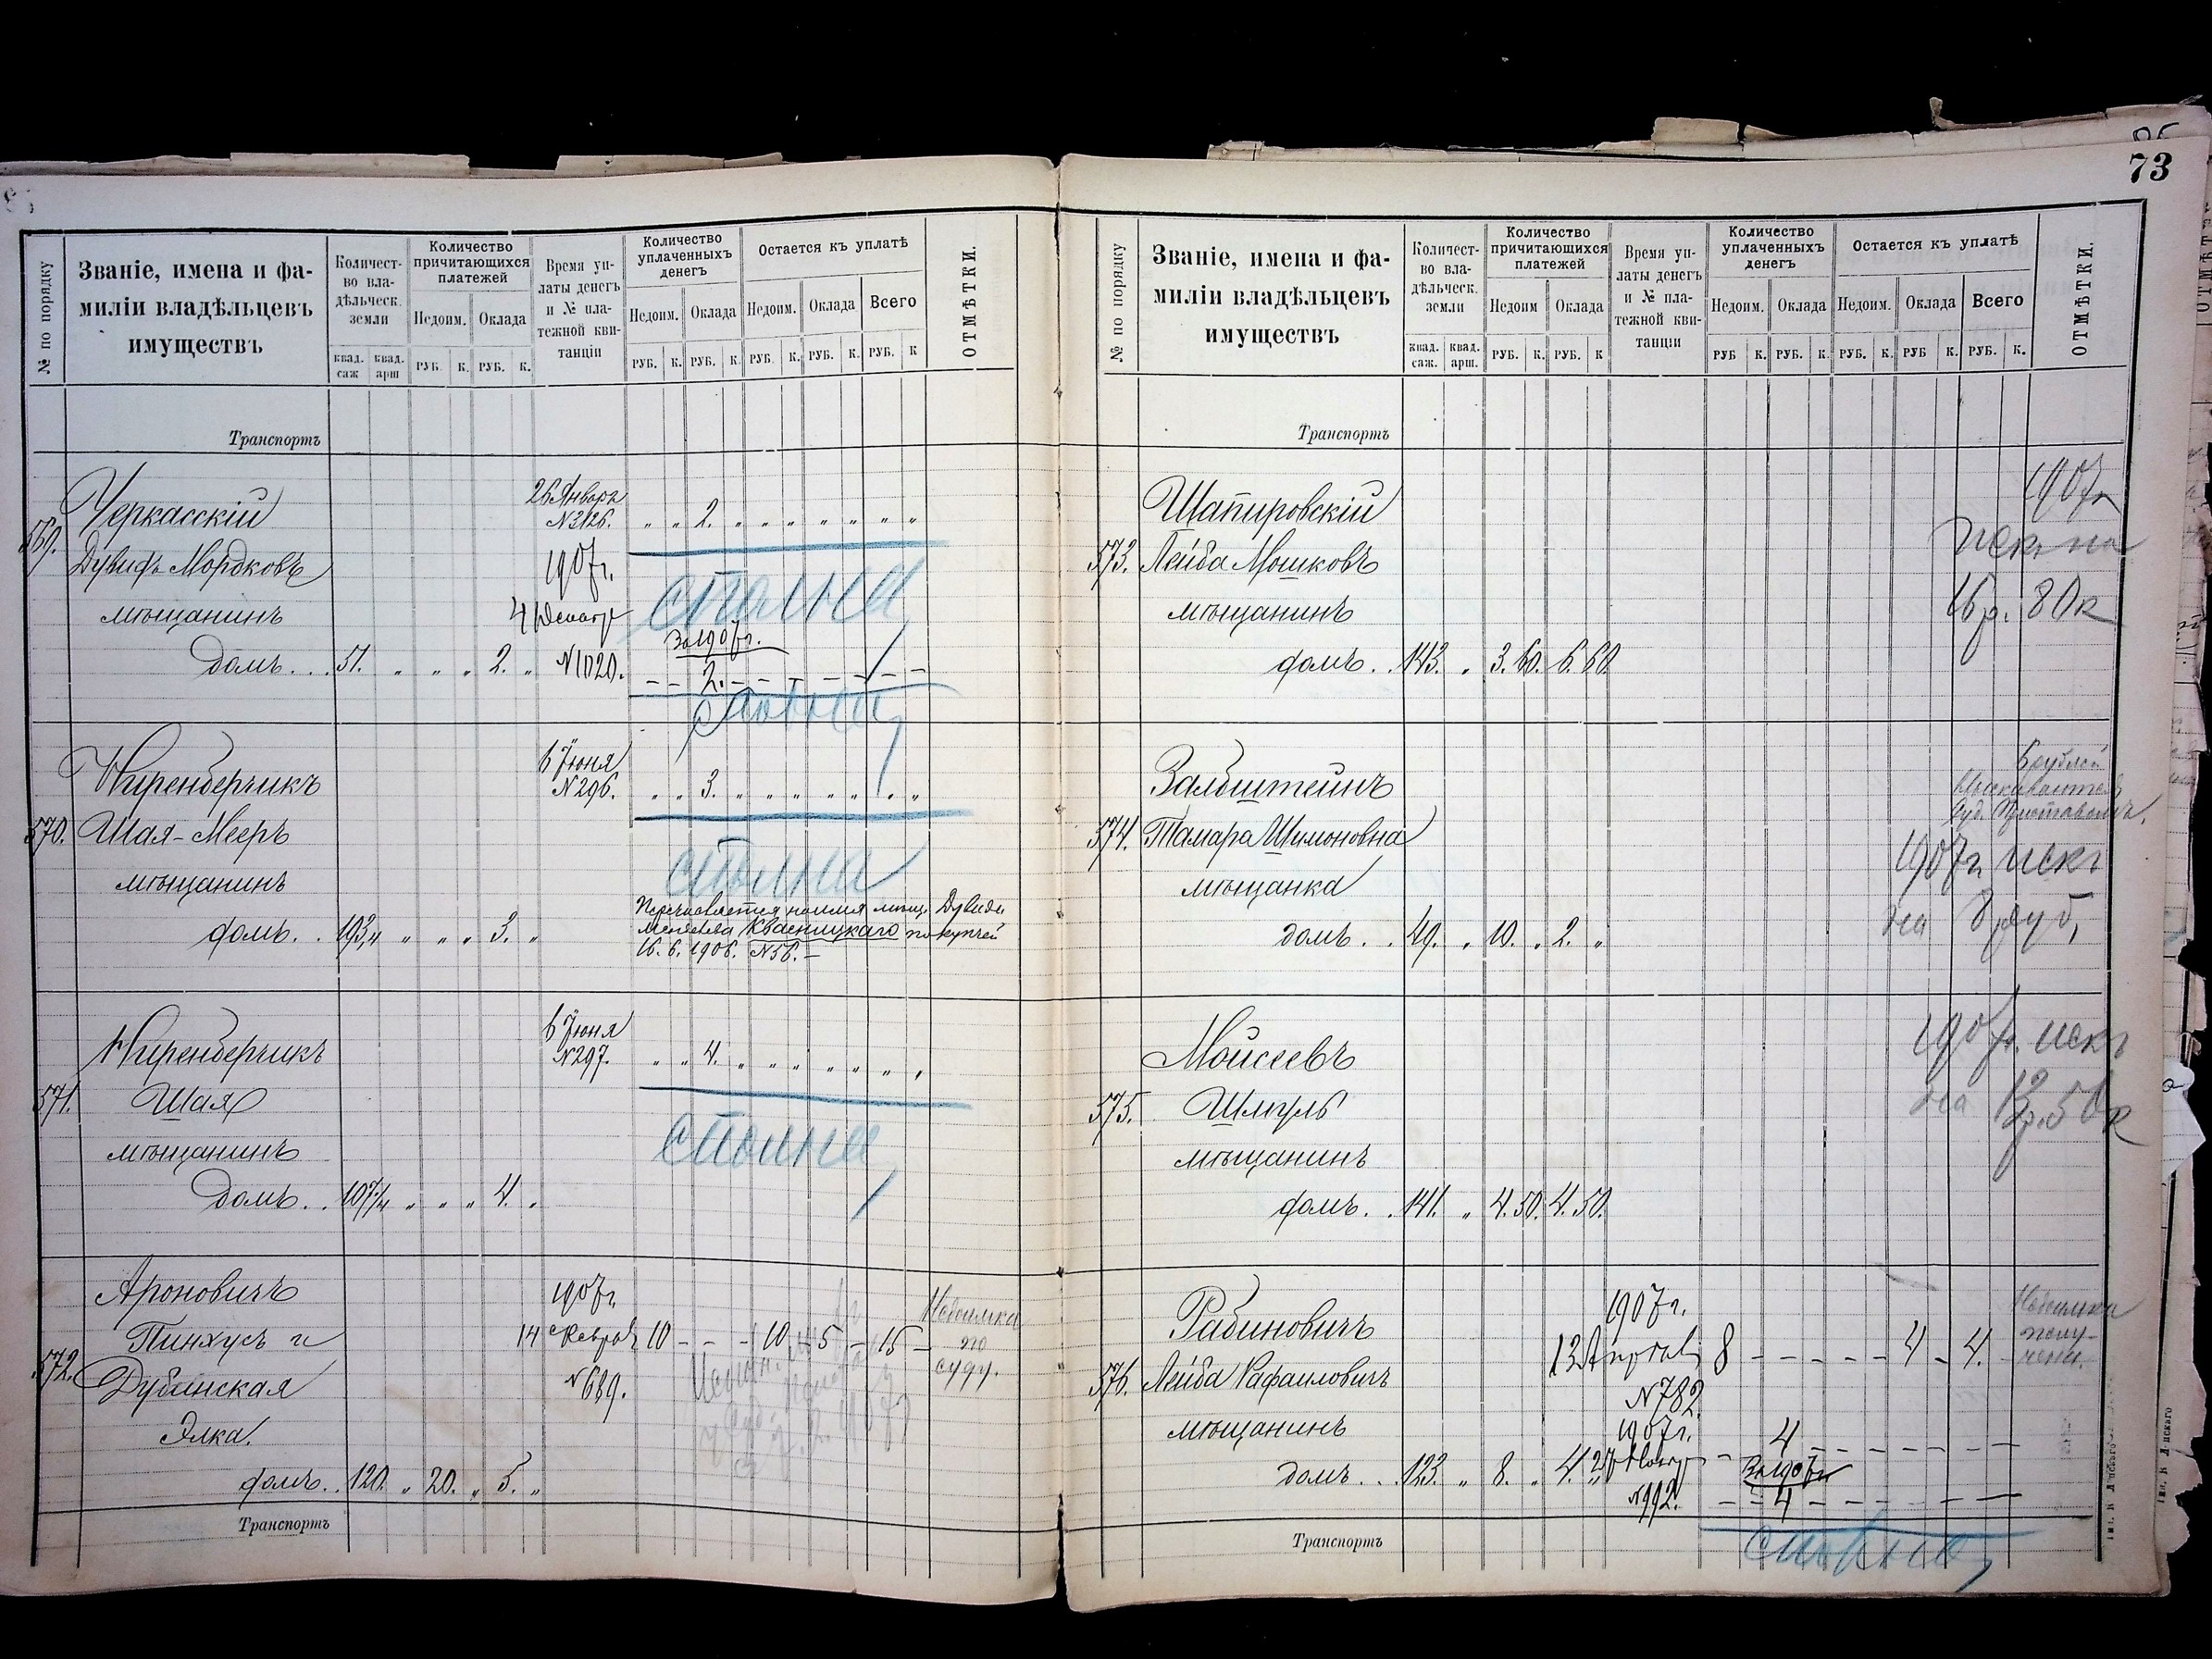 73
№ по порядку
Званіе, имена и фа-
миліи владѣльцевъ
имуществъ
Количест-
во вла-
дѣльческ.
земли
квад. саж
квад. арш
Количество
причитающихся
платежей
Недоим.
Оклада
РУБ. К. РУБ. К.
Время уп-
латы денегъ
и № пла-
тежной кви-
танціи
Количество
уплаченныхъ
денегъ
Недоим.
Оклада
РУБ. К. РУБ. К.
Остается къ уплатѣ
Недоим.
Оклада
Всего
РУБ. К. РУБ. К. РУБ. К
ОТМѢТКИ.
Транспортъ
569.
Черкасскій
Дувидъ Мордковъ
мѣщанинъ
домъ... 51. „ „ „ 2. „
26 Января
№ 3126. „ „ 2. „ „ „ „ „ „ „
сполна
1907г.
4
№ 1020.
За 1907г.
– – 2. – – – – – – –
сполна
570.
Ниренберчикъ
Шая-Мееръ
мѣщанинъ
домъ. . 193/4 „ „ „ 3. „
6 Іюня
№ 296. „ „ 3. „ „ „ „ „ „ „
сполна
Дувида
Квасницкаго по купчей
16. 6. 1906. № 56. –
571.
Ниренберчикъ
Шая
мѣщанинъ
домъ. . 107/4 „ „ „ 4. „
6 Іюня
№ 297. „ „ 4. „ „ „ „ „ „ „
сполна
572.
Ароновичъ
Пинхусъ и
Дубинская
Элка.
домъ. . 120. „ 20. „ 5. „
1907г.
14 Февраля 10 – – – 10 – 5 – 15 –
№ 689.
Недоимка
по
суду.
Транспортъ
№ по порядку
Званіе, имена и фа-
миліи владѣльцевъ
имуществъ
Количест-
во вла-
дѣльческ.
земли
квад. саж.
квад. арш.
Количество
причитающихся
платежей
Недоим
Оклада
РУБ. К. РУБ. К
Время уп-
латы денегъ
и № пла-
тежной кви-
танціи
Количество
уплаченныхъ
денегъ
Недоим.
Оклада
РУБ К. РУБ. К.
Остается къ уплатѣ
Недоим.
Оклада
Всего
РУБ. К. РУБ К. РУБ. К.
ОТМѢТКИ.
Транспортъ
573.
Шапировскій
Лейба Мошковъ
мѣщанинъ
домъ. . 143. „ 3. 60. 6. 60.
1907г
искъ на
16р. 80к
574.
Зальштейнъ
Тамара Шимоновна
мѣщанка
домъ. . 49. „ 10. „ 2. „
6 рублей
Суд. Приставомъ.
1907г. искъ
на 8 руб,
575.
Мойсеевъ
Шмуль
мѣщанинъ
домъ. . 141. „ 4. 50. 4. 50.
1907г. искъ
на 12р. 50к
576.
Рабиновичъ
Лейба Рафаиловичъ
мѣщанинъ
домъ. . . 123. „ 8. „ 4. „
1907г.
13 Апрѣля 8 – – – – – 4 – 4. –
№ 782.
Недоимка
полу-
чена.
1907г.
– 4 – – – – – – –
За 1907г
№ 992. – – 4 – – – – – –
сполна
Транспортъ